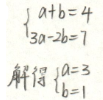 { a+b=4
3a-2b=7
解得 { a=3
b=1